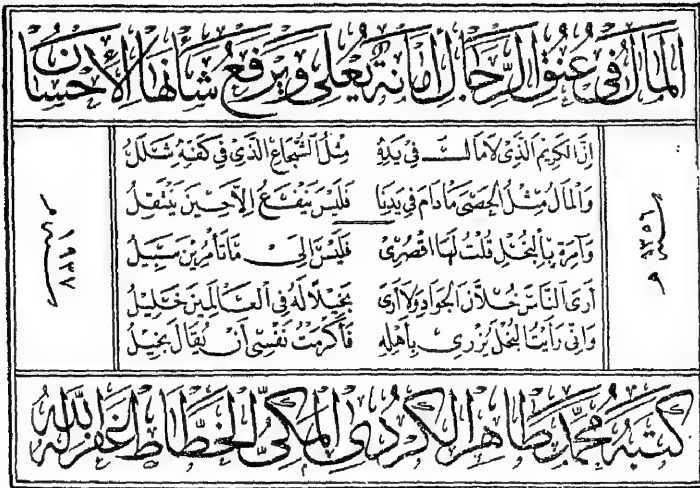 المَالُ فِي عُنُقِ الرِّجَالِ أَمَانَةٌ يُعْلِي وَيَرْفَعُ شَأْنَهَا الإِحْسَانُ
إِنَّ الكَرِيمَ الَّذِي لَا مَالَ فِي يَدِهِ مِثْلُ الشُّجَاعِ الَّذِي فِي كَفِّهِ شَلَلُ
وَالْمَالُ مِثْلُ الحَصَى مَا دَامَ فِي يَدِنَا فَلَيْسَ يَنْفَعُ إِلَّا حِينَ يَنْتَقِلُ
وَآمِرَةٍ بِالْبُخْلِ قُلْتُ لَهَا اقْصُرِي فَلَيْسَ إِلَى مَا تَأْمُرِينَ سَبِيلُ
أَرَى النَّاسَ خُلَّانَ الجَوَادِ وَلَا أَرَى بَخِيلًا لَهُ فِي العَالَمِينَ خَلِيلُ
وَإِنِّي رَأَيْتُ البُخْلَ يُزْرِي بِأَهْلِهِ فَأَكْرَمْتُ نَفْسِي أَنْ يُقَالَ بَخِيلُ
سنة ١٣٥٦ هـ
سنة ١٩٣٧ م
كَتَبَهُ مُحَمَّد طَاهِر الكُرْدِيُّ المَكِّيُّ الخَطَّاط غَفَرَ اللهُ لَهُ